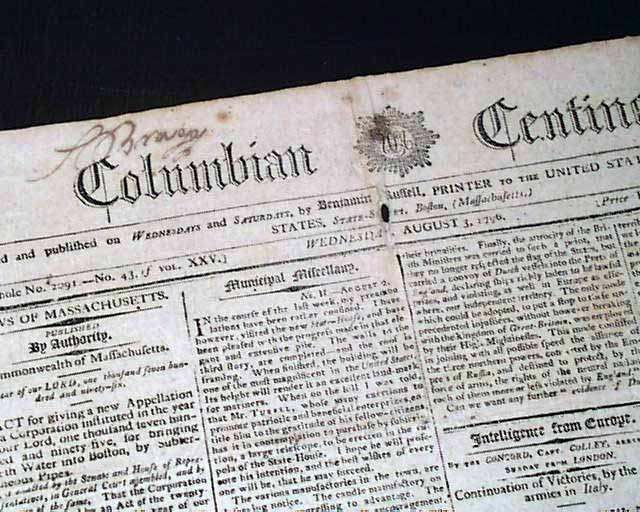 Columbian Centine
ed and published on WEDNESDAYS and SATURDAYS, by Benjamin Russell, PRINTER TO THE UNITED STAT
STATES, STATE-S   et, Boston, (Massachusetts.)
hole No. 1291.—No. 43, of VOL. XXV.]
WEDNESDA   AUGUST 3, 1796.
[Price
WS OF MASSACHUSETTS.
PUBLISHED
By Authority.
ommonwealth of Massachusetts.
ear of our LORD, one thousand seven hun-
dred and ninety-six.
ACT for giving a new Appellation
a Corporation instituted in the year
our Lord, one thousand seven hun-
and ninety-five, for bringing
sh Water into Boston, by Subter-
neous Pipes.
enacted by the Senate and House of Repre-
sentatives, in General Court assembled, and by
of the same, That the Corporation
by an Act of the twenty
year of our
Municipal Miscellany.
No. II—AUGUST 2.
IN the course of the last week, my peregrin-
lations have been rather confined. I have
however, visited the new State-House; and have
been pleased with the progress made in that ele-
gant and extensive building. The walls of the
third story, are completed—and the roof is
framing. When finished, the building will be
one of the most magnificent in the United States:
its height will render it an excellent land-mark
for mariners. When on the hill I was told,
that Mr. TURELL, whose many exertions to
promote patriotic and beneficial enterprizes, en-
title him to the gratitude of his fellow-citizens,
has it in contemplation to purchase by subscrip-
tion, a large telescope, to be erected in the cu-
pola of the State House. I hope he will profe-
cute his intention, and the best wishes of every
one will be, that he may succeed.
The various manufactories in the town, are
deserving notice. The candle manufactory on
progressing to advantage. The
encouragement,
their hostilities. Finally, the atrocity of the Bri-
Ministers was carried to such a point, that
they no longer respected the flag of the States, but
carried a convoy of Dutch vessels into the Ports of
England, declaring ships richly laden to be lawful
prizes, and visitings as well in Europe as else-
where, our independent territory. The only mode
which could be adopted, to put a stop to these un-
precedented injustices, without however breaking
with the kingdom of Great-Britain, was embraced
by their High Mightinesses. This mode consisted
in joining with all possible speed the alliance of
the three great powers, contracted by the Em-
press of Russia, and destined to protect, by
force of arms, the rights of the neutral nations,
each of them more or less violated by England.
Can we want any further evidence of
Intelligence from Europe.
By the CONCORD, CAPT. COLLEY, ARRI
SUNDAY FROM LONDON.
Continuation of Victories, by the
armies in Italy.